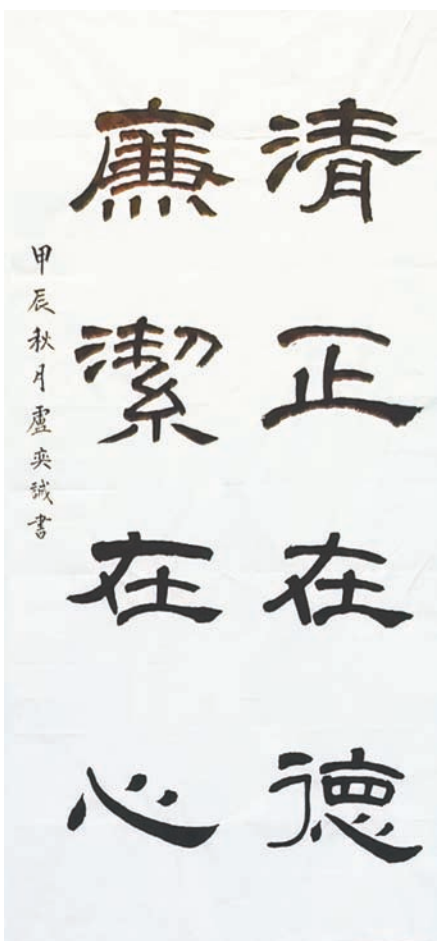 清正在德
廉潔在心
甲辰秋月盧奕誠書